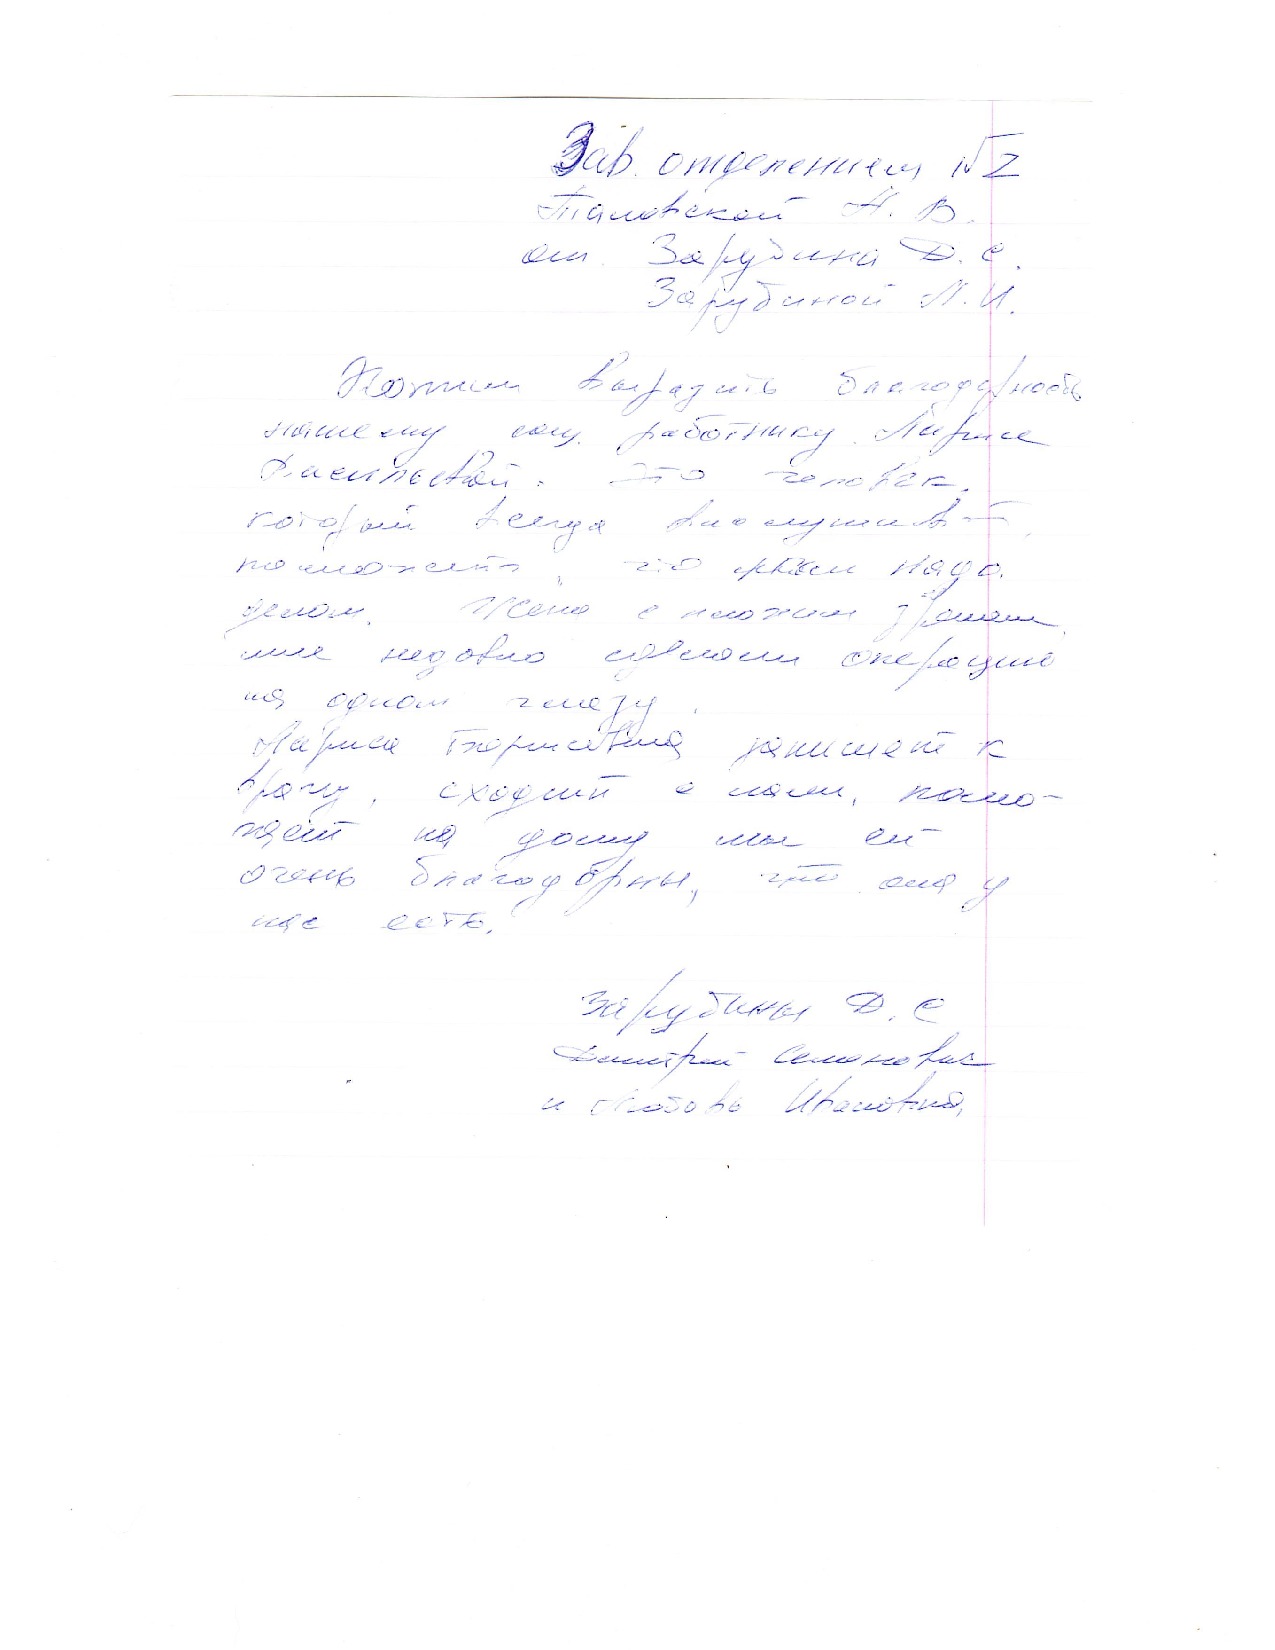 Зав. отделением №2
Таловской Н. В.
от Зарубина Д. С.
Зарубиной Л. И.
Хотим выразить благодарность
нашему соц. работнику Ларисе
это человек,
который всегда выслушивает,
поможет, что нам надо.
делом. Жена с плохим зрением,
мне недавно сделали операцию
на одном глазу.
Лариса Борисовна запишет к
врачу, сходит с нами, помо-
жет на дому мы ей
очень благодарны, что она у
нас есть.
Зарубины Д. С
Дмитрий Семенович
и Любовь Ивановна.